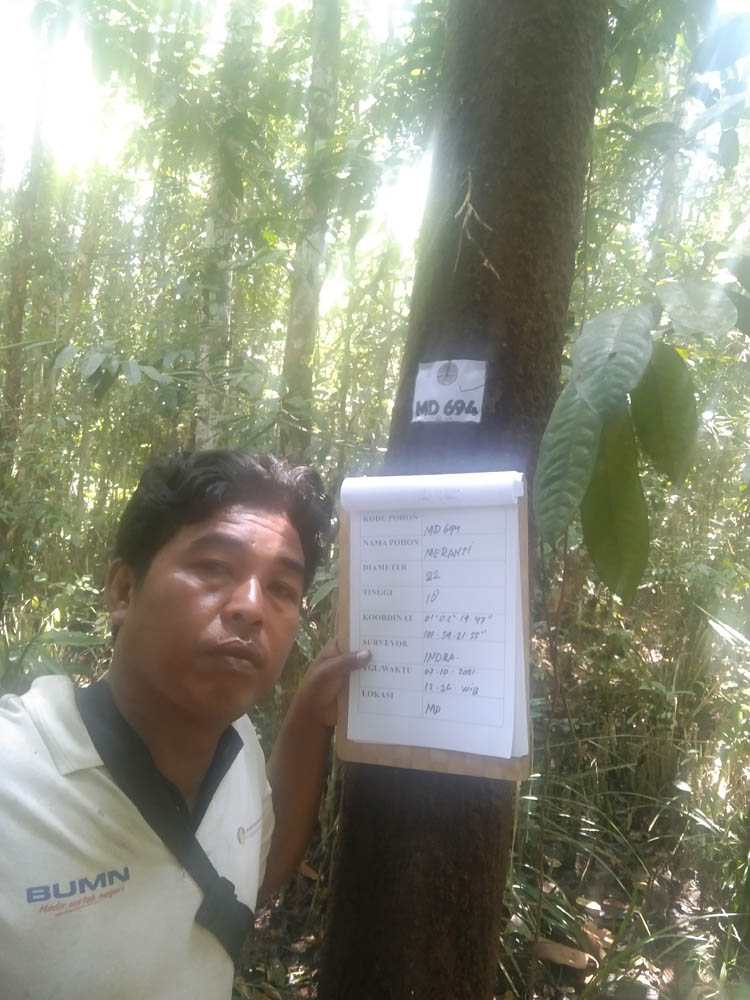 MD 694
KODE POHON MD 694
NAMA POHON MERANTI
DIAMETER 22
TINGGI 18
KOORDINAT 01° 02' 19.47"
101.59.21.55"
SURVEYOR INDRA
TGL/WAKTU 07.10.2021
12.26. WIB
LOKASI MD
BUMN
Hadir untuk negeri